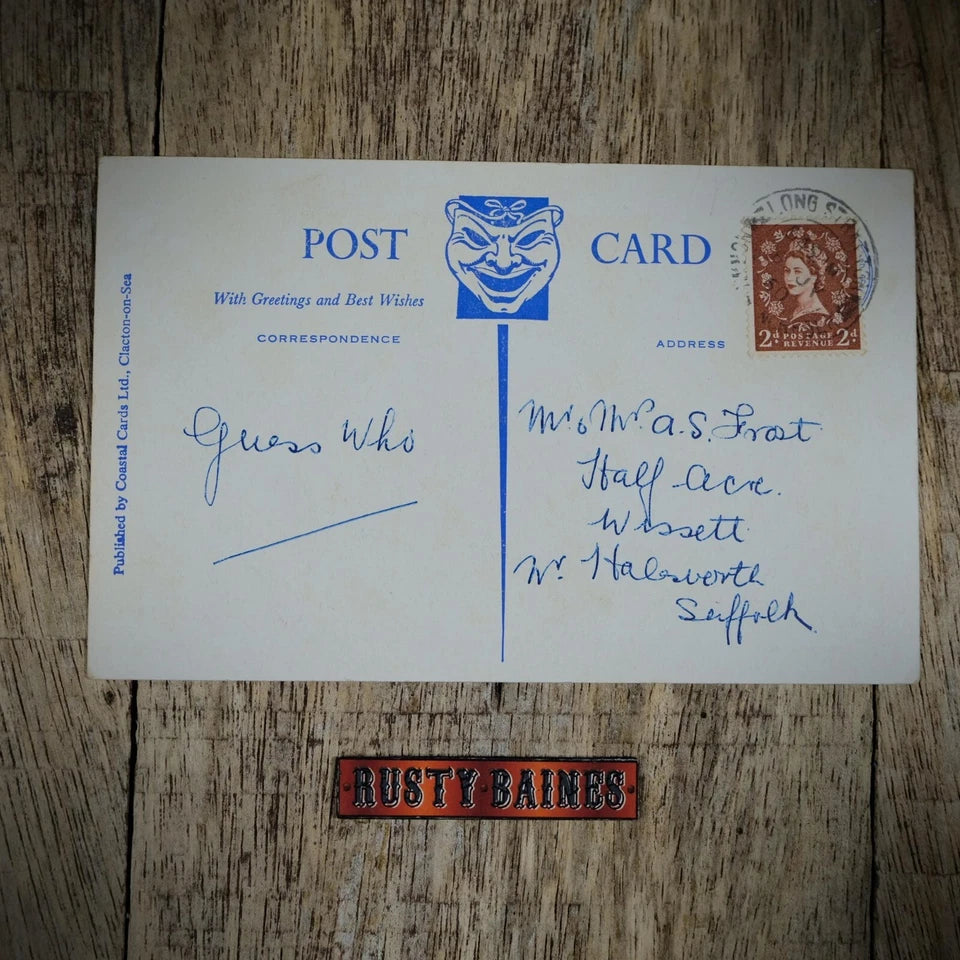 POST CARD
With Greetings and Best Wishes
CORRESPONDENCE
ADDRESS
Published by Coastal Cards Ltd., Clacton-on-Sea
LONG
2d POSTAGE 2d
REVENUE
Guess Who
Mr & Mrs. A. S. Frost
Half Acre.
Wissett
Nr. Halesworth
Suffolk.
RUSTY BAINES